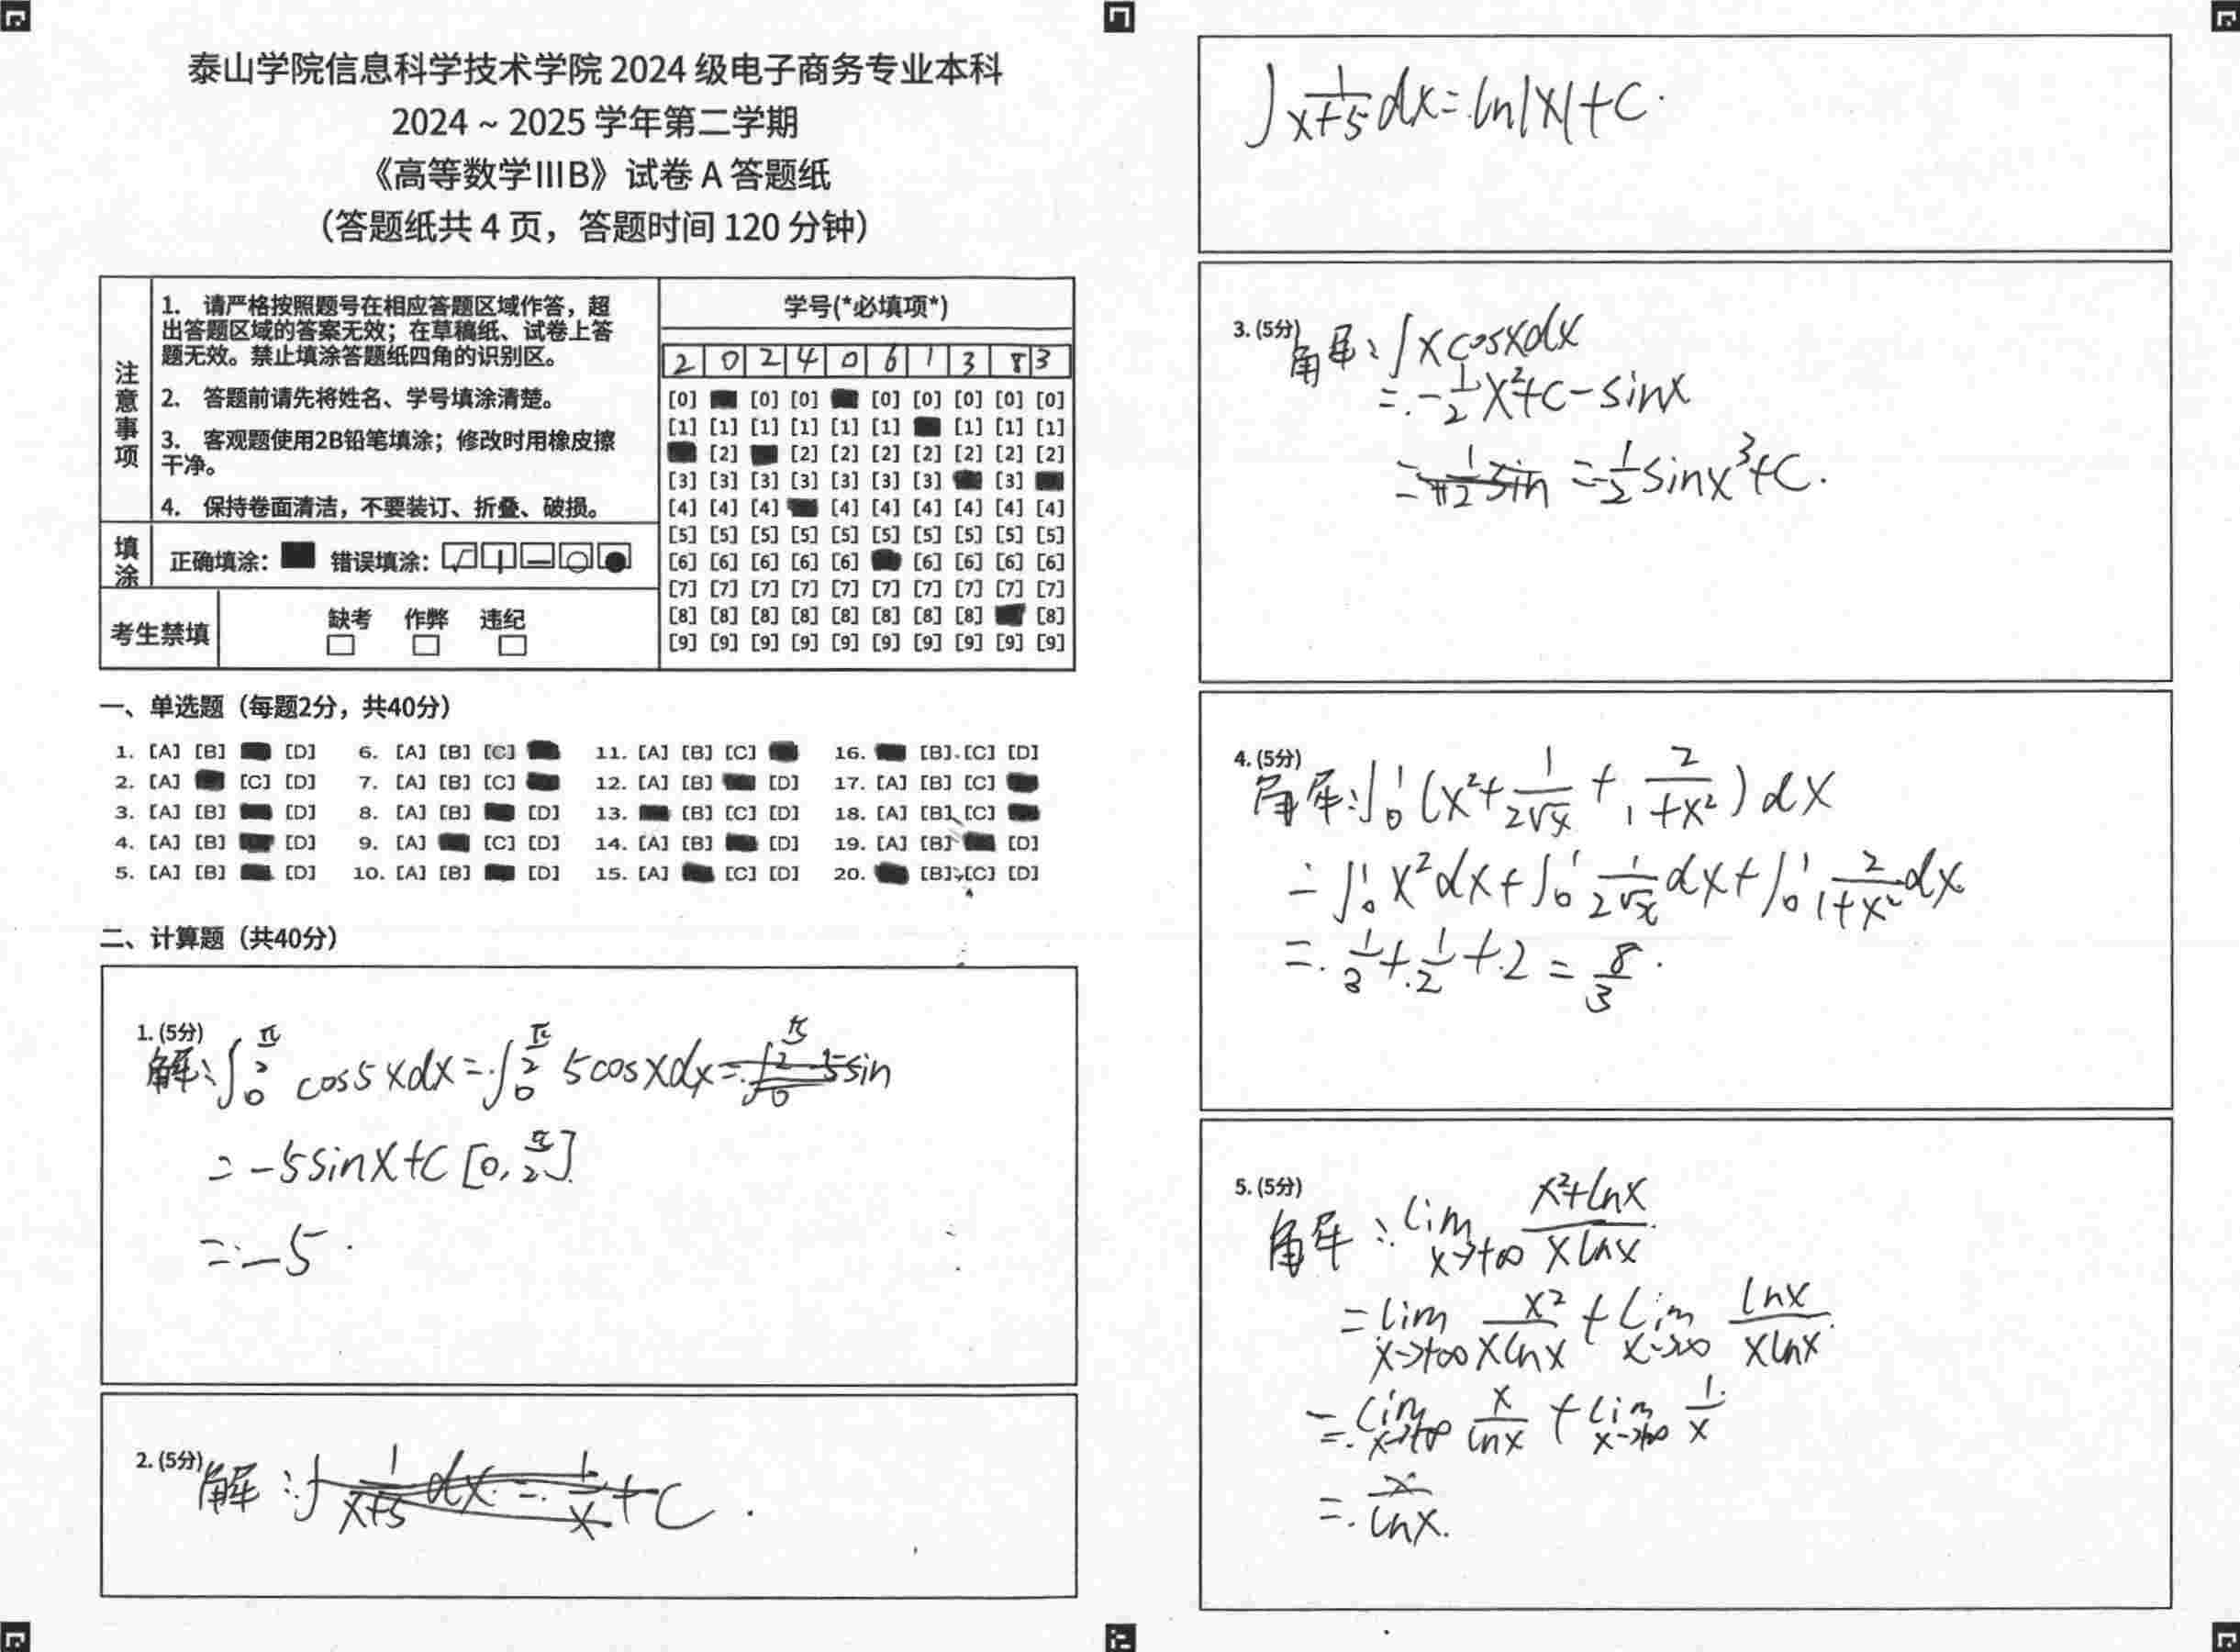 泰山学院信息科学技术学院 2024 级电子商务专业本科
2024 ~ 2025 学年第二学期
《高等数学IIIB》试卷 A 答题纸
（答题纸共 4 页，答题时间 120 分钟）
注意事项
1. 请严格按照题号在相应答题区域作答，超
出答题区域的答案无效；在草稿纸、试卷上答
题无效。禁止填涂答题纸四角的识别区。
2. 答题前请先将姓名、学号填涂清楚。
3. 客观题使用2B铅笔填涂；修改时用橡皮擦
干净。
4. 保持卷面清洁，不要装订、折叠、破损。
填涂 正确填涂： 错误填涂：
考生禁填 缺考 作弊 违纪
学号(*必填项*)
2 0 2 4 0 6 1 3 8 3
[0] [0] [0] [0] [0] [0] [0] [0]
[1] [1] [1] [1] [1] [1] [1] [1] [1]
[2] [2] [2] [2] [2] [2] [2] [2]
[3] [3] [3] [3] [3] [3] [3] [3]
[4] [4] [4] [4] [4] [4] [4] [4] [4]
[5] [5] [5] [5] [5] [5] [5] [5] [5] [5]
[6] [6] [6] [6] [6] [6] [6] [6] [6]
[7] [7] [7] [7] [7] [7] [7] [7] [7] [7]
[8] [8] [8] [8] [8] [8] [8] [8] [8]
[9] [9] [9] [9] [9] [9] [9] [9] [9] [9]
一、单选题（每题2分，共40分）
1. [A] [B] [D] 6. [A] [B] [C] 11. [A] [B] [C] 16. [B] [C] [D]
2. [A] [C] [D] 7. [A] [B] [C] 12. [A] [B] [D] 17. [A] [B] [C]
3. [A] [B] [D] 8. [A] [B] [D] 13. [B] [C] [D] 18. [A] [B] [C]
4. [A] [B] [D] 9. [A] [C] [D] 14. [A] [B] [D] 19. [A] [B] [D]
5. [A] [B] [D] 10. [A] [B] [D] 15. [A] [C] [D] 20. [B] [C] [D]
二、计算题（共40分）
1. (5分)
解：∫₀^(π/2) cos5xdx = ∫₀^(π/2) 5cosxdx = ∫₀^(π/2) 5sin
= -5sinx+C [0, π/2]
= -5.
2. (5分) 解：∫ 1/(x+5) dx = 1/x + C.
∫ 1/(x+5) dx = ln|x|+C.
3. (5分) 解：∫xcosxdx
= -1/2 x²+C-sinx
= 1/2 sin = 1/2 sinx³+C.
4. (5分)
解：∫₀¹ (x² + 1/(2√x) + 2/(1+x²)) dx
= ∫₀¹ x²dx + ∫₀¹ 1/(2√x) dx + ∫₀¹ 2/(1+x²) dx
= 1/3 + 1/2 + 2 = 8/3.
5. (5分)
解：lim x→+∞ (x²+lnx)/(xlnx)
= lim x→+∞ x²/(xlnx) + lim x→∞ lnx/(xlnx)
= lim x→+∞ x/lnx + lim x→+∞ 1/x
= x/lnx.